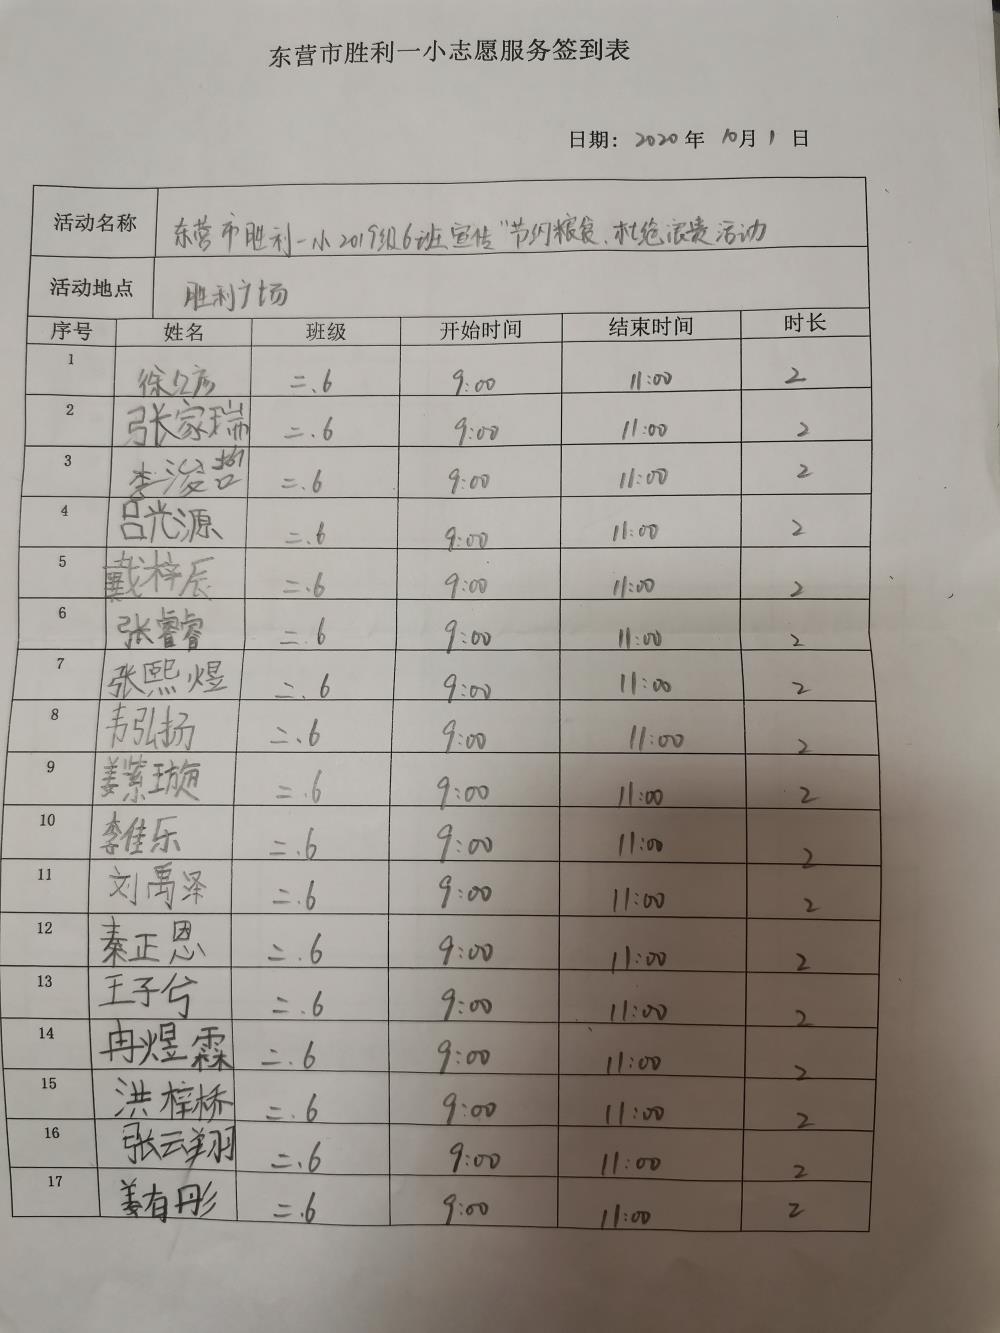 东营市胜利一小志愿服务签到表
日期: 2020 年 10月 1 日
活动名称 东营市胜利一小2019级6班宣传“节约粮食、杜绝浪费活动
活动地点 胜利广场
序号 姓名 班级 开始时间 结束时间 时长
1 徐 二.6 9:00 11:00 2
2 张家瑞 二.6 9:00 11:00 2
3 李浚哲 二.6 9:00 11:00 2
4 吕光源 二.6 9:00 11:00 2
5 戴梓辰 二.6 9:00 11:00 2
6 张睿睿 二.6 9:00 11:00 2
7 张熙煜 二.6 9:00 11:00 2
8 韦弘扬 二.6 9:00 11:00 2
9 姜紫璇 二.6 9:00 11:00 2
10 李佳乐 二.6 9:00 11:00 2
11 刘禹泽 二.6 9:00 11:00 2
12 秦正恩 二.6 9:00 11:00 2
13 王子兮 二.6 9:00 11:00 2
14 冉煜霖 二.6 9:00 11:00 2
15 洪梓桥 二.6 9:00 11:00 2
16 张云翔 二.6 9:00 11:00 2
17 姜有彤 二.6 9:00 11:00 2